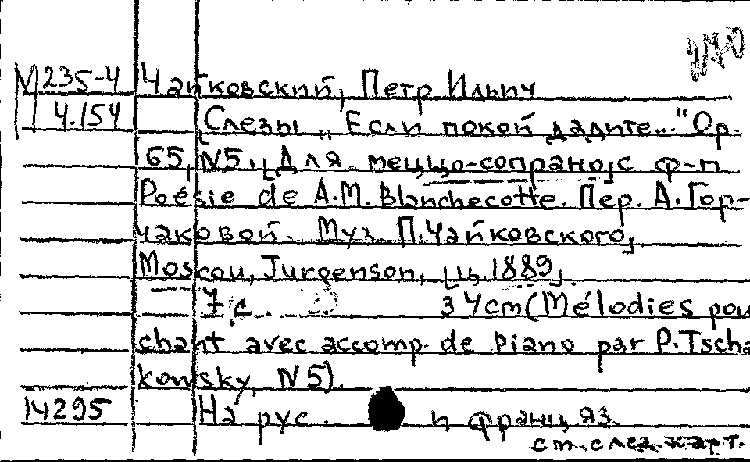 М235-4 Чайковский, Петр Ильич
4.154 Слезы „Если покой дадите..." Ор.
65, N5. [Для меццо-сопрано] с ф-п
Poésie de A.M. Blanchecotte. Пер. А. Гор-
чаковой. Муз. П. Чайковского].
Moscou, Jurgenson, [ц. 1889]
7 с. 34cm (Mélodies pour
chant avec accomp. de piano par P. Tscha
kowsky, N5).
14295 На рус. и франц яз.
см. след. карт.